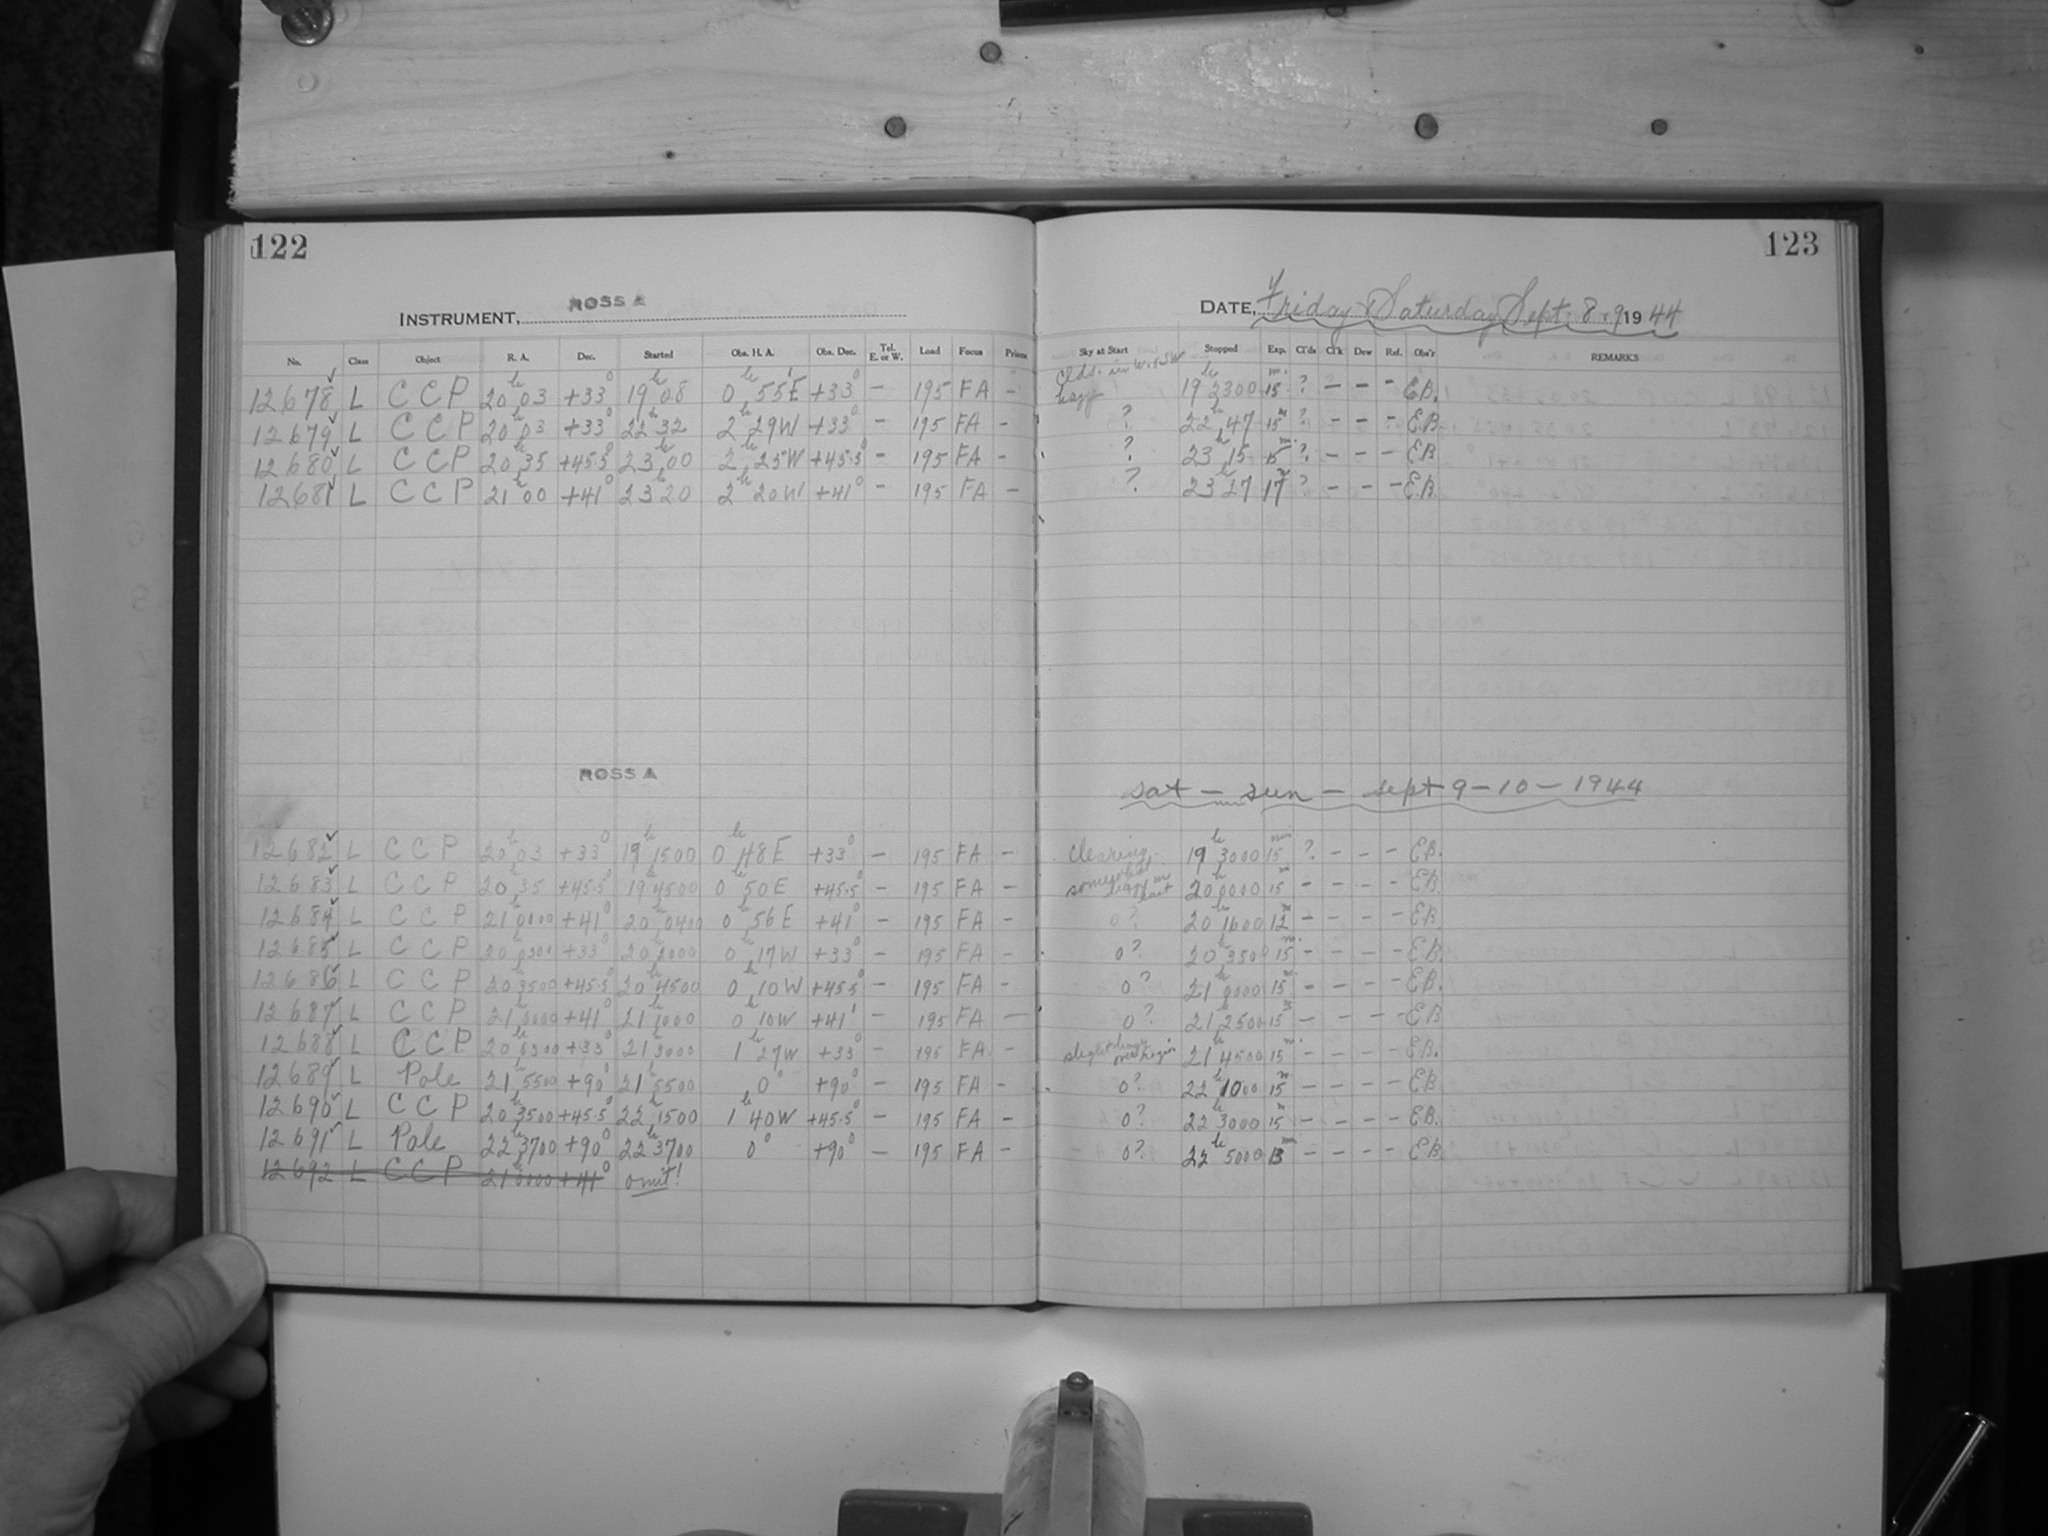 122
ROSS A
INSTRUMENT,
No. Class Object R. A. Dec. Started Obs. H. A. Obs. Dec. Tel. E. or W. Load Focus Prism
12678 ✓ L C C P 20h 03 +33° 19h 08 0h 55' E +33° - 195 FA -
12679 ✓ L C C P 20h 03 +33° 22h 32 2h 29 W +33° - 195 FA -
12680 ✓ L C C P 20h 35 +45.5° 23h 00 2h 25 W +45.5° - 195 FA -
12681 ✓ L C C P 21h 00 +41° 23h 20 2h 20 W +41° - 195 FA -
ROSS A
12682 ✓ L C C P 20h 03 +33° 19h 1500 0h 48 E +33° - 195 FA -
12683 ✓ L C C P 20h 35 +45.5° 19h 4500 0h 50 E +45.5° - 195 FA -
12684 ✓ L C C P 21h 0000 +41° 20h 0400 0h 56 E +41° - 195 FA -
12685 ✓ L C C P 20h 0300 +33° 20h 2000 0h 17 W +33° - 195 FA -
12686 ✓ L C C P 20h 3500 +45.5° 20h 4500 0h 10 W +45.5° - 195 FA -
12687 ✓ L C C P 21h 0000 +41° 21h 1000 0h 10 W +41' - 195 FA -
12688 ✓ L C C P 20h 0300 +33° 21h 3000 1h 27 W +33° - 195 FA -
12689 ✓ L Pole 21h 5500 +90° 21h 5500 0° +90° - 195 FA -
12690 ✓ L C C P 20h 3500 +45.5° 22h 1500 1h 40 W +45.5° - 195 FA -
12691 ✓ L Pole 22h 3700 +90° 22h 3700 0° +90° - 195 FA -
12692 L C C P 21h 0000 +41° omit!
123
DATE, Friday-Saturday Sept. 8-9 1944
Sky at Start Stopped Exp. Cl'ds Cl'k Dew Ref. Obs'r REMARKS
Clds. in W. & SW
hazy 19h 2300 15m. ? - - - E.B.
? 22h 47 15m ? - - - E.B.
? 23h 15 15m. ? - - - EB
? 23h 27 17m ? - - - E.B.
sat - sun - sept 9-10-1944
Clearing. 19h 3000 15min ? - - - E.B.
somewhat hazy in east 20h 0000 15m - - - - E.B.
0? 20h 1600 12m - - - - E.B.
0? 20h 3500 15m. - - - - E.B.
0? 21h 0000 15m - - - - E.B.
0? 21h 2500 15m - - - - E.B
slight hazy 21h 4500 15m. - - - - E.B.
0? 22h 1000 15m - - - - E.B.
0? 22h 3000 15m - - - - E.B.
0? 22h 5000 13m - - - - E.B.